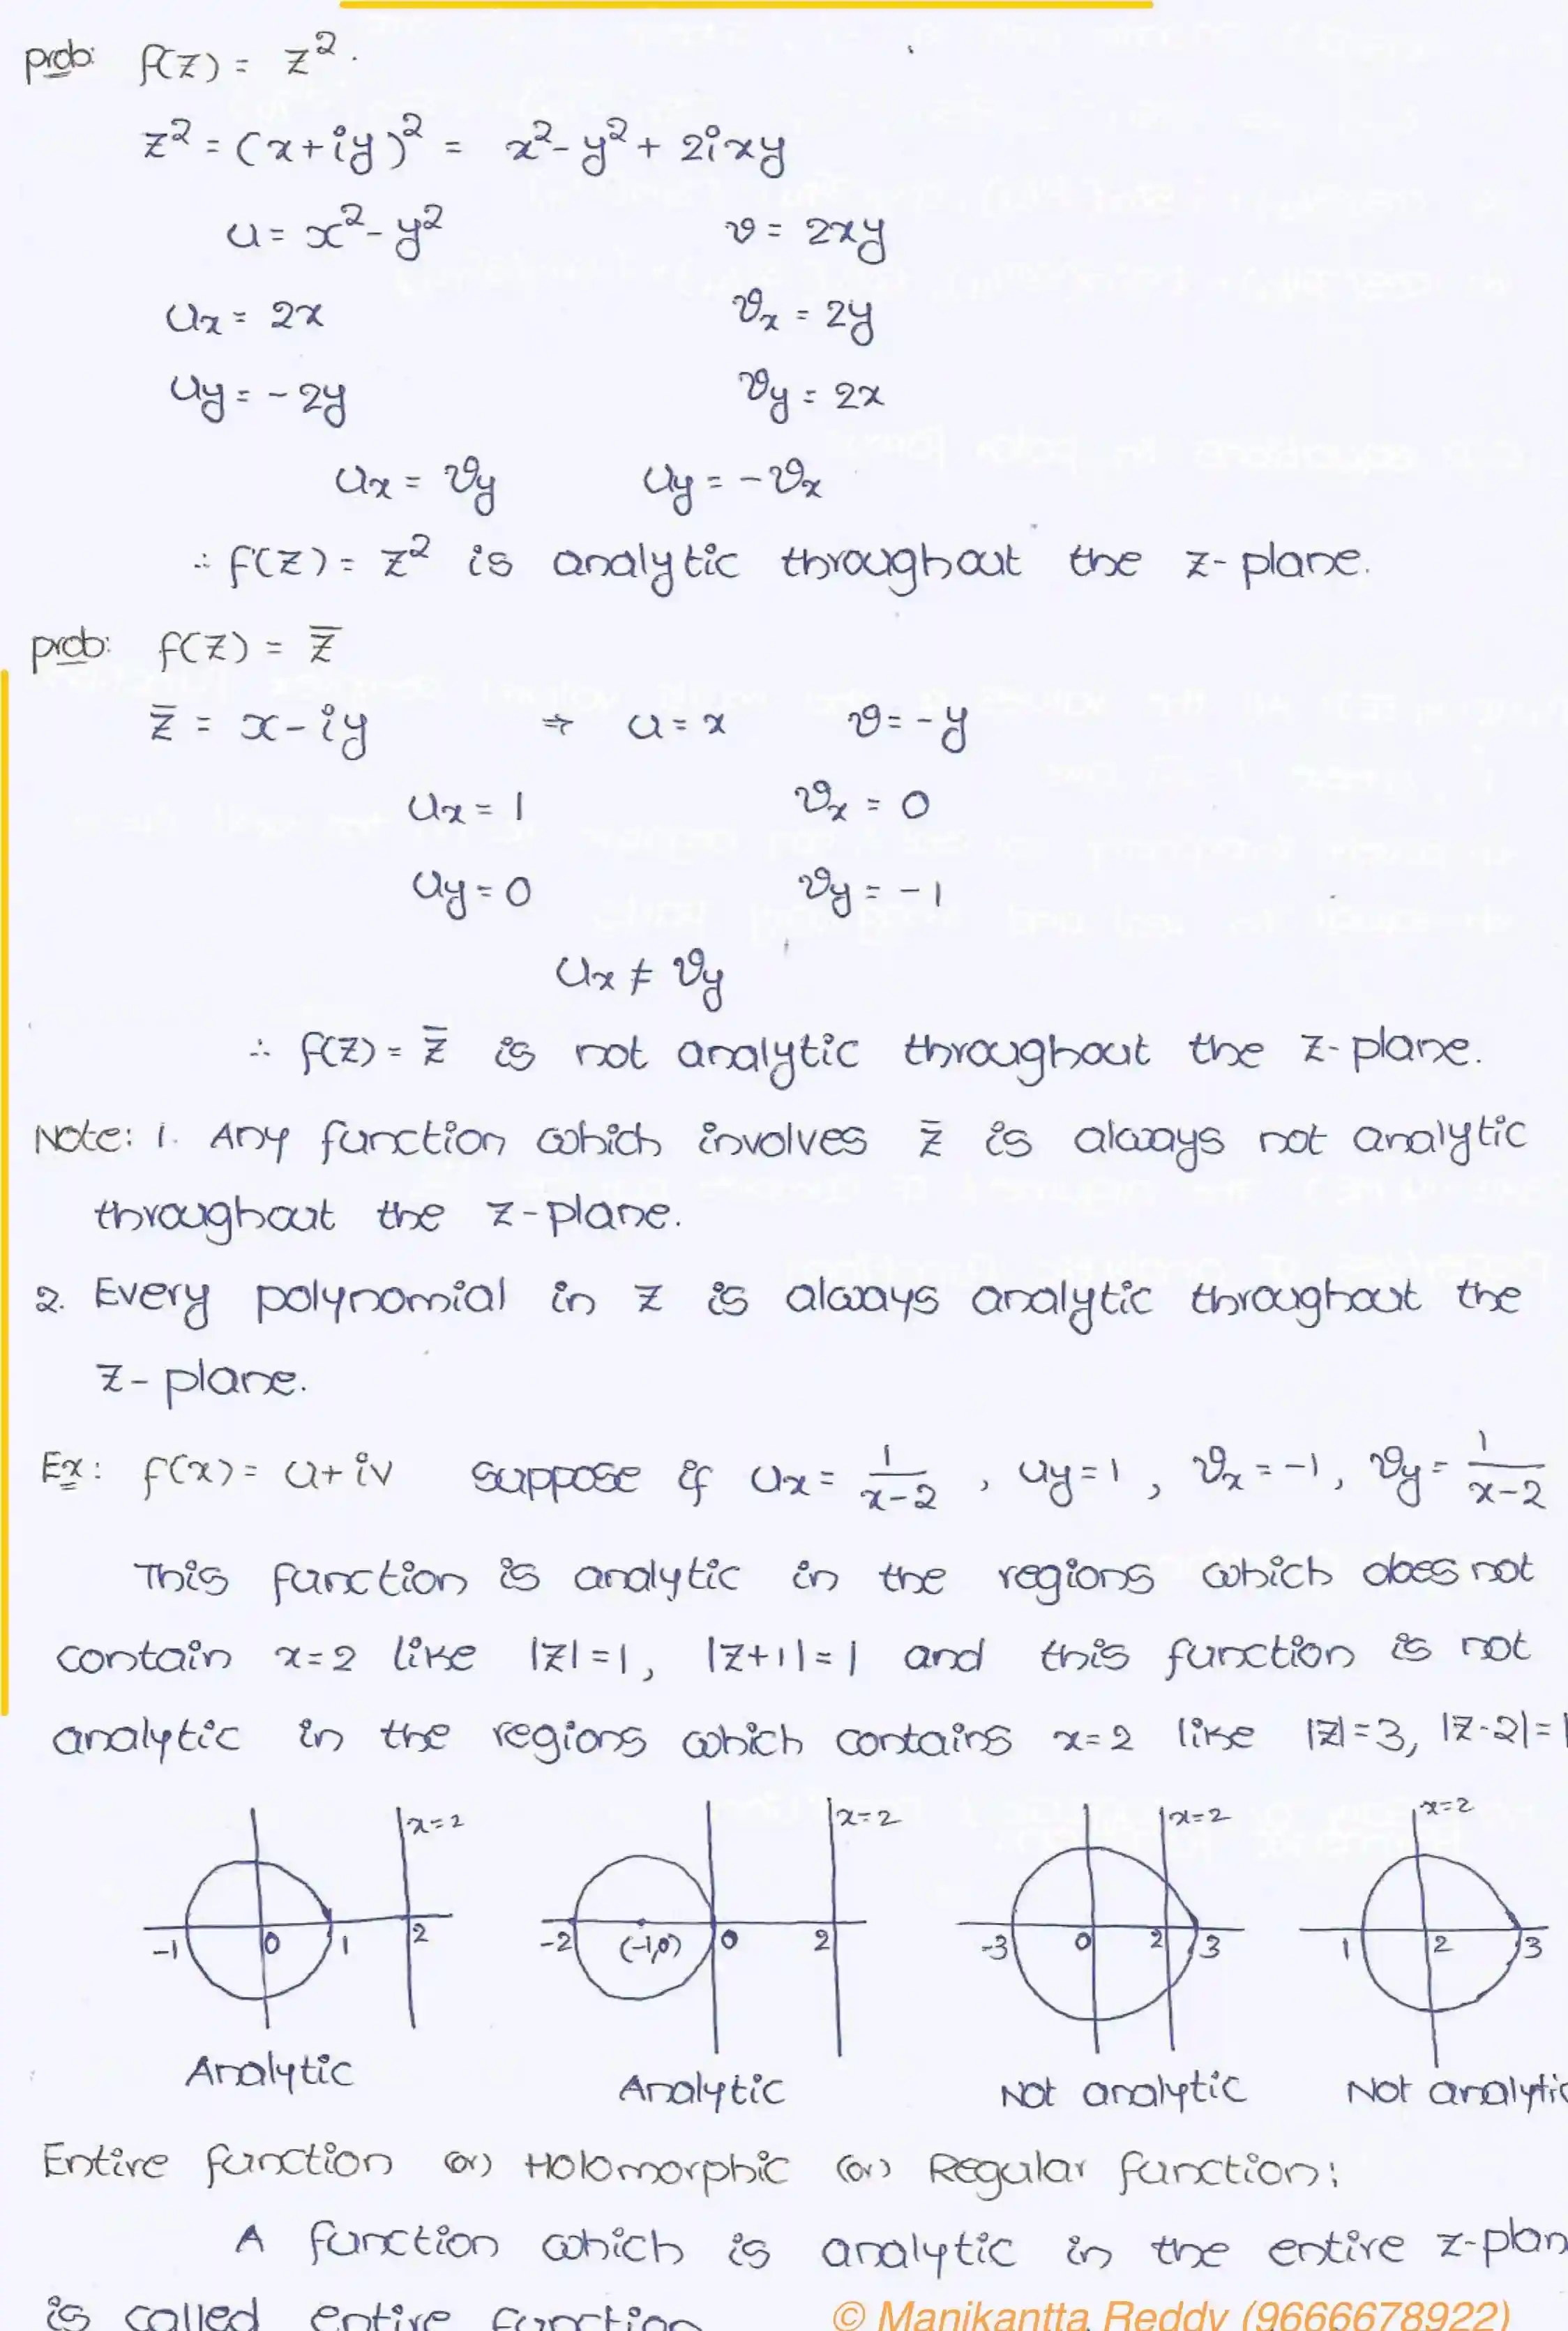 prob: f(z) = z².
z² = (x+iy)² = x²-y²+2ixy
u = x²-y² v = 2xy
ux = 2x vx = 2y
uy = -2y vy = 2x
ux = vy uy = -vx
∴ f(z) = z² is analytic throughout the z-plane.
prob: f(z) = z̄
z̄ = x-iy ⇒ u = x v = -y
ux = 1 vx = 0
uy = 0 vy = -1
ux ≠ vy
∴ f(z) = z̄ is not analytic throughout the z-plane.
Note: 1. Any function which involves z̄ is always not analytic
throughout the z-plane.
2. Every polynomial in z is always analytic throughout the
z-plane.
Ex: f(x) = u+iv suppose if ux = 1/(x-2), uy = 1, vx = -1, vy = 1/(x-2)
This function is analytic in the regions which does not
contain x=2 like |z|=1, |z+1|=1 and this function is not
analytic in the regions which contains x=2 like |z|=3, |z-2|=1
x=2 x=2 x=2 x=2
-1 0 1 2 -2 (-1,0) 0 2 -3 0 2 3 1 2 3
Analytic Analytic Not analytic Not analytic
Entire function (or) Holomorphic (or) Regular function:
A function which is analytic in the entire z-plan
is called entire function
© Manikantta Reddy (9666678922)